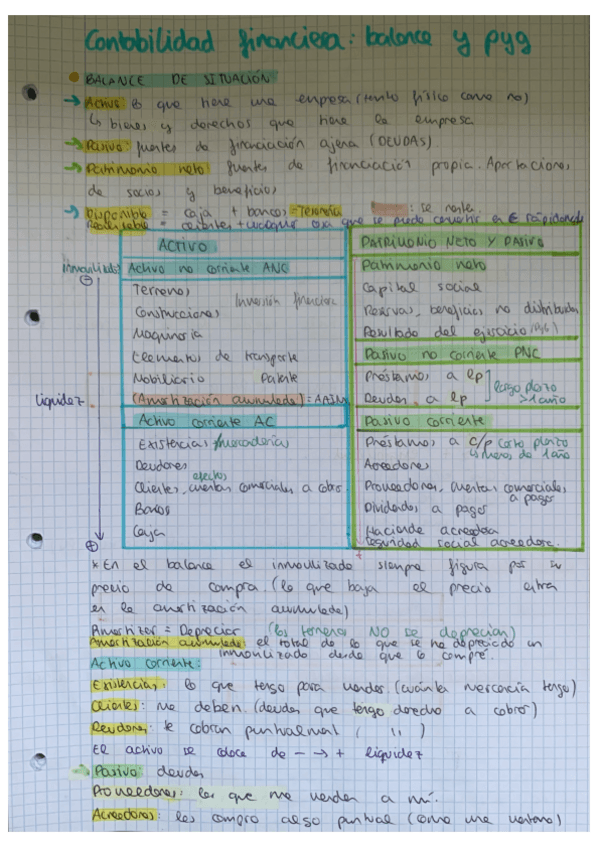 Contabilidad financiera: balance y pyg
BALANCE DE SITUACIÓN
→ Activo lo que tiene una empresa (tanto físico como no)
↳ bienes y derechos que tiene la empresa
→ Pasivo: fuentes de financiación ajena (DEUDAS).
→ Patrimonio neto fuentes de financiación propia. Aportaciones
de socios y beneficios
→ Disponible = caja + bancos = Tesorería : se resta
Realizable = clientes + cualquier cosa que se puede convertir en € rápidamente
ACTIVO
inmovilizado Activo no corriente ANC
Terrenos
Construcciones Inversión financiera
Maquinaria
Elementos de transporte
Mobiliario Patente
(Amortización acumulada) = AAIM
liquidez
Activo corriente AC
Existencias/mercaderías
Deudores
Clientes, efectos cuentas comerciales a cobrar
Bancos
Caja
PATRIMONIO NETO Y PASIVO
Patrimonio neto
Capital social
Reservas, beneficios no distribuidos
Resultado del ejercicio
Pasivo no corriente PNC
Préstamos a lp
Deudas a lp
largo plazo
>1 año
Pasivo corriente
Préstamos a c/p corto plazo
↳ menos de 1 año
Acreedores
Proveedores, cuentas comerciales
a pagar
Dividendos a pagar
Hacienda acreedora
seguridad social acreedora.
* En el balance el inmovilizado siempre figura por su
precio de compra. (lo que baja el precio entra
en la amortización acumulada)
Amortizar = Depreciar (los terrenos NO se deprecian)
Amortización acumulada el total de lo que se ha depreciado un
inmovilizado desde que lo compré.
Activo corriente:
Existencias: lo que tengo para vender. (cuánta mercancía tengo)
Clientes: me deben. (deudas que tengo derecho a cobrar)
Deudores: le cobran puntualment ( " )
El activo se coloca de - → + liquidez
→ Pasivo: deudas
Proveedores: los que me venden a mí.
Acreedores: les compro algo puntual (como una ventana)